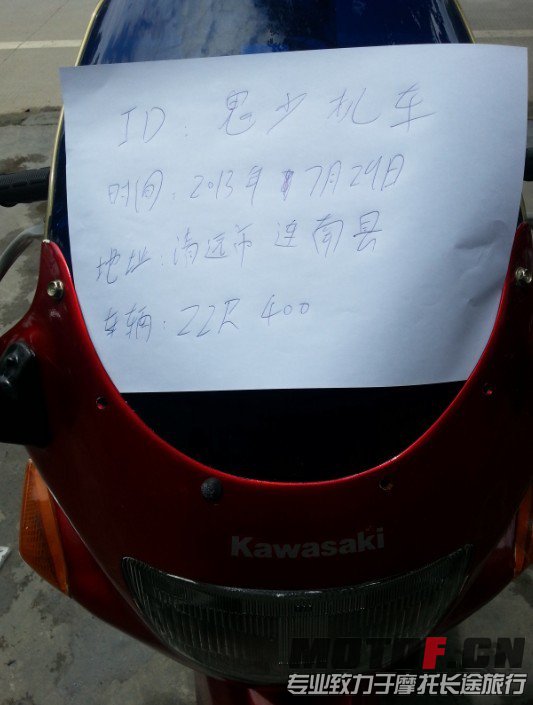 ID: 鬼少机车
时间: 2013年 7月29日
地址: 清远市 连南县
车辆: ZZR 400
Kawasaki
MOTOF.CN
专业致力于摩托长途旅行